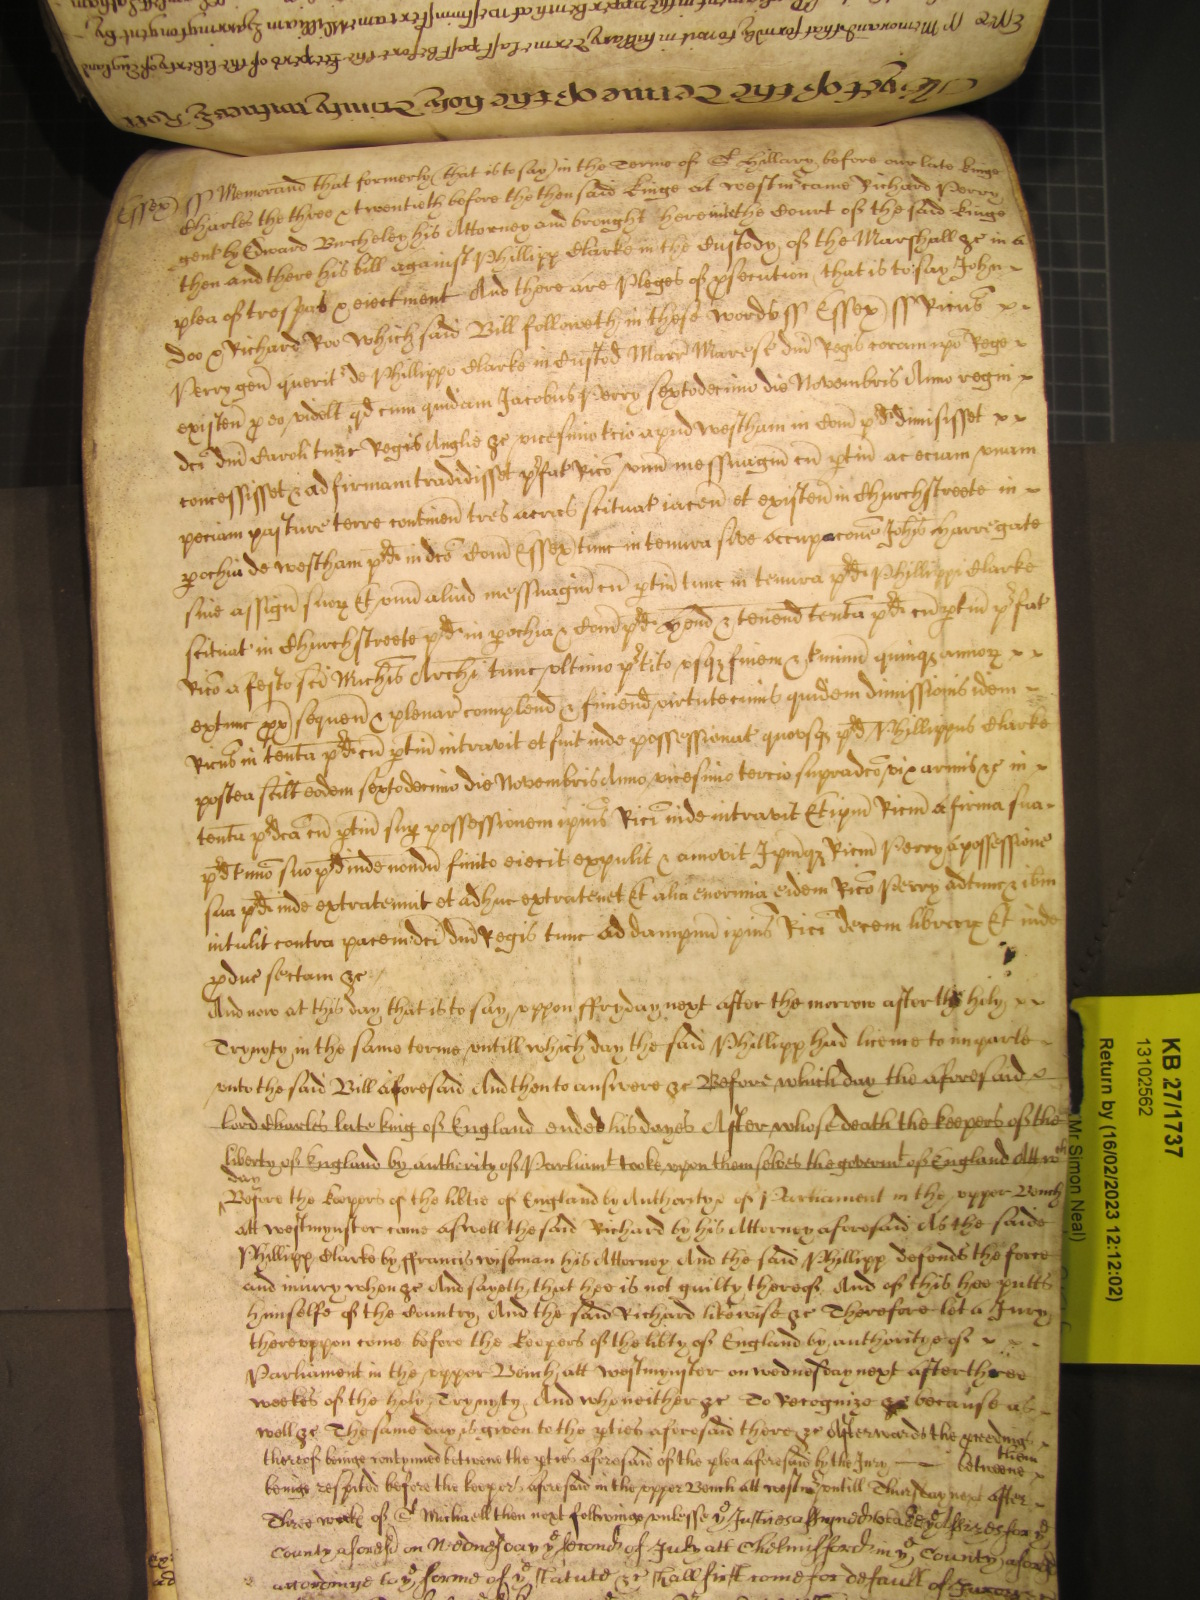 As yet of the Terme of the holy Trinity Roll
Memorand that formerly to wit in hillary Terme last past before the keepers of the liberty of England
in the upper Bench at Westminster came William gent by
Essex ss Memorand that formerly that is to say in the Terme of St Hillary before our late kinge
Charles the three & twentieth before the then said kinge at westm came Richard Perry
gent by Edward Bucheley his Attorney and brought here into the Court of the said kinge
then and there his bill against Phillipp Clarke in the Custody of the Marshall &c in a
plea of trespas & eiectment And there are Pleges of psecution that is to say John
Doo & Richard Roo which said Bill followeth in these words ss Essex ss Ricus
Perry gen querit de Phillippo Clarke in Custod Marr Maresc dni Regis coram ipo Rege
existen p eo videlt qd cum quidam Jacobus Perry sextodecimo die Novembris Anno regni
dci dni Caroli nunc Regis Anglie &c vicesimo tcio apud Westham in Com pd dimisisset
concessisset & ad firmam tradidisset pfat Rico unu messuagiu cu ptin ac eciam unam
peciam pasture terre continen tres acras scituat iacen et existen in Churchstreete in
pochia de westham pd in dco Com Essex tunc in tenura sive occupacone Johis Harregate
sive assign suor Et unu aliud messuagiu cu ptin tunc in tenura pd Phillippi Clarke
scituat in Churchstreete pd in pochia & Com pd hend & tenend tenta pd cu ptin pfat
Rico a festo sci Michis Archi tunc ultimo ptito usqz finem & tminu quinqz annor
extunc px sequen & plenar complend & finiend virtute cuius quidem dimissionis idem
Ricus in tenta pd cu ptin intravit et fuit inde possessionat quousqz pd Phillippus Clarke
postea scilt eodem sextodecimo die Novembris Anno vicesimo tercio supradco vi & armis &c in
tenta pdca cu ptin sup possessionem ipius Rici inde intravit Et ipm Ricm a firma sua
pd tmino suo pd inde nondu finito eiecit expulit & amovit Ipmqz Ricm Perry a possessione
sua pd inde extratenuit et adhuc extratenet Et alia enormia eidem Rico Perry adtunc & ibm
intulit contra pacem dci dni Regis tunc ad dampnu ipius Rici decem librar Et inde
pduc sectam &c
And now at this day that is to say uppon ffryday next after the morrow after the holy
Trynyty in the same terme untill which day the said Phillipp had licence to imparle
unto the said Bill aforesaid And then to answere &c Before which day the aforesaid
Lord Charles late king of England ended his dayes After whose death the keepers of the
liberty of England by authority of Parliamt tooke upon themselves the governmt of England Att wch
day
Before the keepers of the libtie of England by Authoritye of Parliament in the upper Bench
att westmynster came aswell the said Richard by his Attorney aforesaid As the saide
Phillipp Clarke by ffrancis wiseman his Attorney And the said Phillipp defends the force
and iniury when &c And sayeth that hee is not guilty thereof And of this hee putts
himselfe of the Country And the said Richard likewise &c Therefore let a Jury
thereuppon come before the keepers of the libty of England by authoritye of
Parliament in the upper Bench att westmynster on wednesday next after three
weekes of the holy Trynyty And who neither &c To Recognize &c because as
well &c The same day is given to the pties aforesaid there &c Afterwards the pceedings
thereof beinge contynued betweene the pties aforesaid of the plea aforesaid by the Jury betweene them
beinge respited before the keepers aforesaid in the upper Bench att westmr untill Thursday next after
Three weeks of St Michaell then next followinge unlesse ye Justices Assigned to take ye Assizes for ye
County aforesd on Wednesday ye second of July att Chelmsford in ye County aforesd
accordinge to ye forme of ye Statute &c shall first come for default of Jurors
KB 27/1737
13102562
Return by (16/02/2023 12:12:02)
Mr Simon Neal)